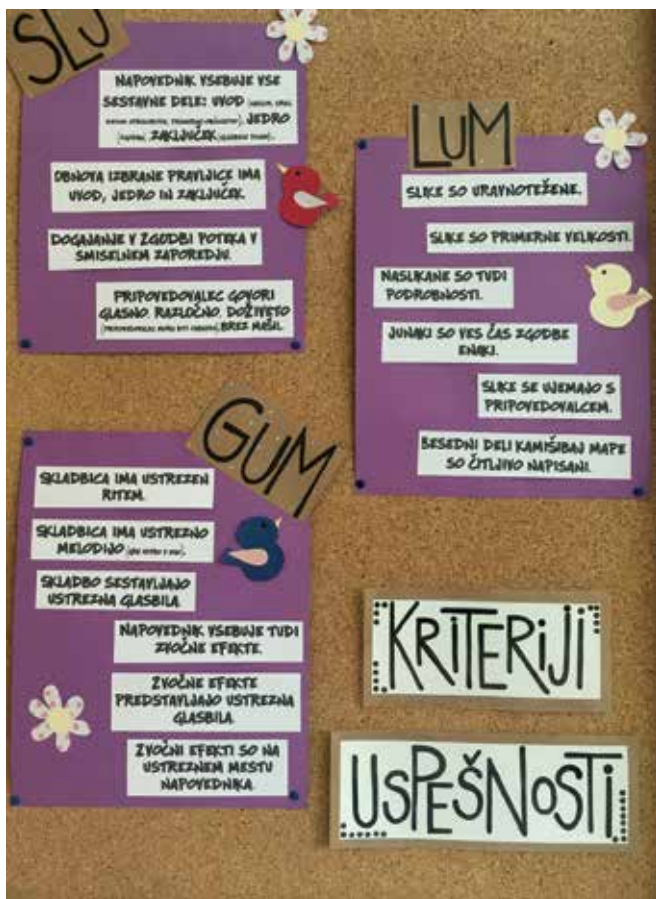 SLJ
NAPOVEDNIK VSEBUJE VSE
SESTAVNE DELE: UVOD
JEDRO
ZAKLJUČEK
OBNOVA IZBRANE PRAVLJICE IMA
UVOD, JEDRO IN ZAKLJUČEK.
DOGAJANJE V ZGODBI POTEKA V
SMISELNEM ZAPOREDJU.
PRIPOVEDOVALEC GOVORI
GLASNO, RAZLOČNO, DOŽIVETO
BREZ MAŠIL.
LUM
SLIKE SO URAVNOTEŽENE.
SLIKE SO PRIMERNE VELIKOSTI.
NASLIKANE SO TUDI
PODROBNOSTI.
JUNAKI SO VES ČAS ZGODBE
ENAKI.
SLIKE SE UJEMAJO S
PRIPOVEDOVALCEM.
BESEDNI DELI KAMIŠIBAJ MAPE
SO ČITLJIVO NAPISANI.
GUM
SKLADBICA IMA USTREZEN
RITEM.
SKLADBICA IMA USTREZNO
MELODIJO
SKLADBO SESTAVLJAJO
USTREZNA GLASBILA.
NAPOVEDNIK VSEBUJE TUDI
ZVOČNE EFEKTE.
ZVOČNE EFEKTE
PREDSTAVLJAJO USTREZNA
GLASBILA.
ZVOČNI EFEKTI SO NA
USTREZNEM MESTU
NAPOVEDNIKA.
KRITERIJI
USPEŠNOSTI